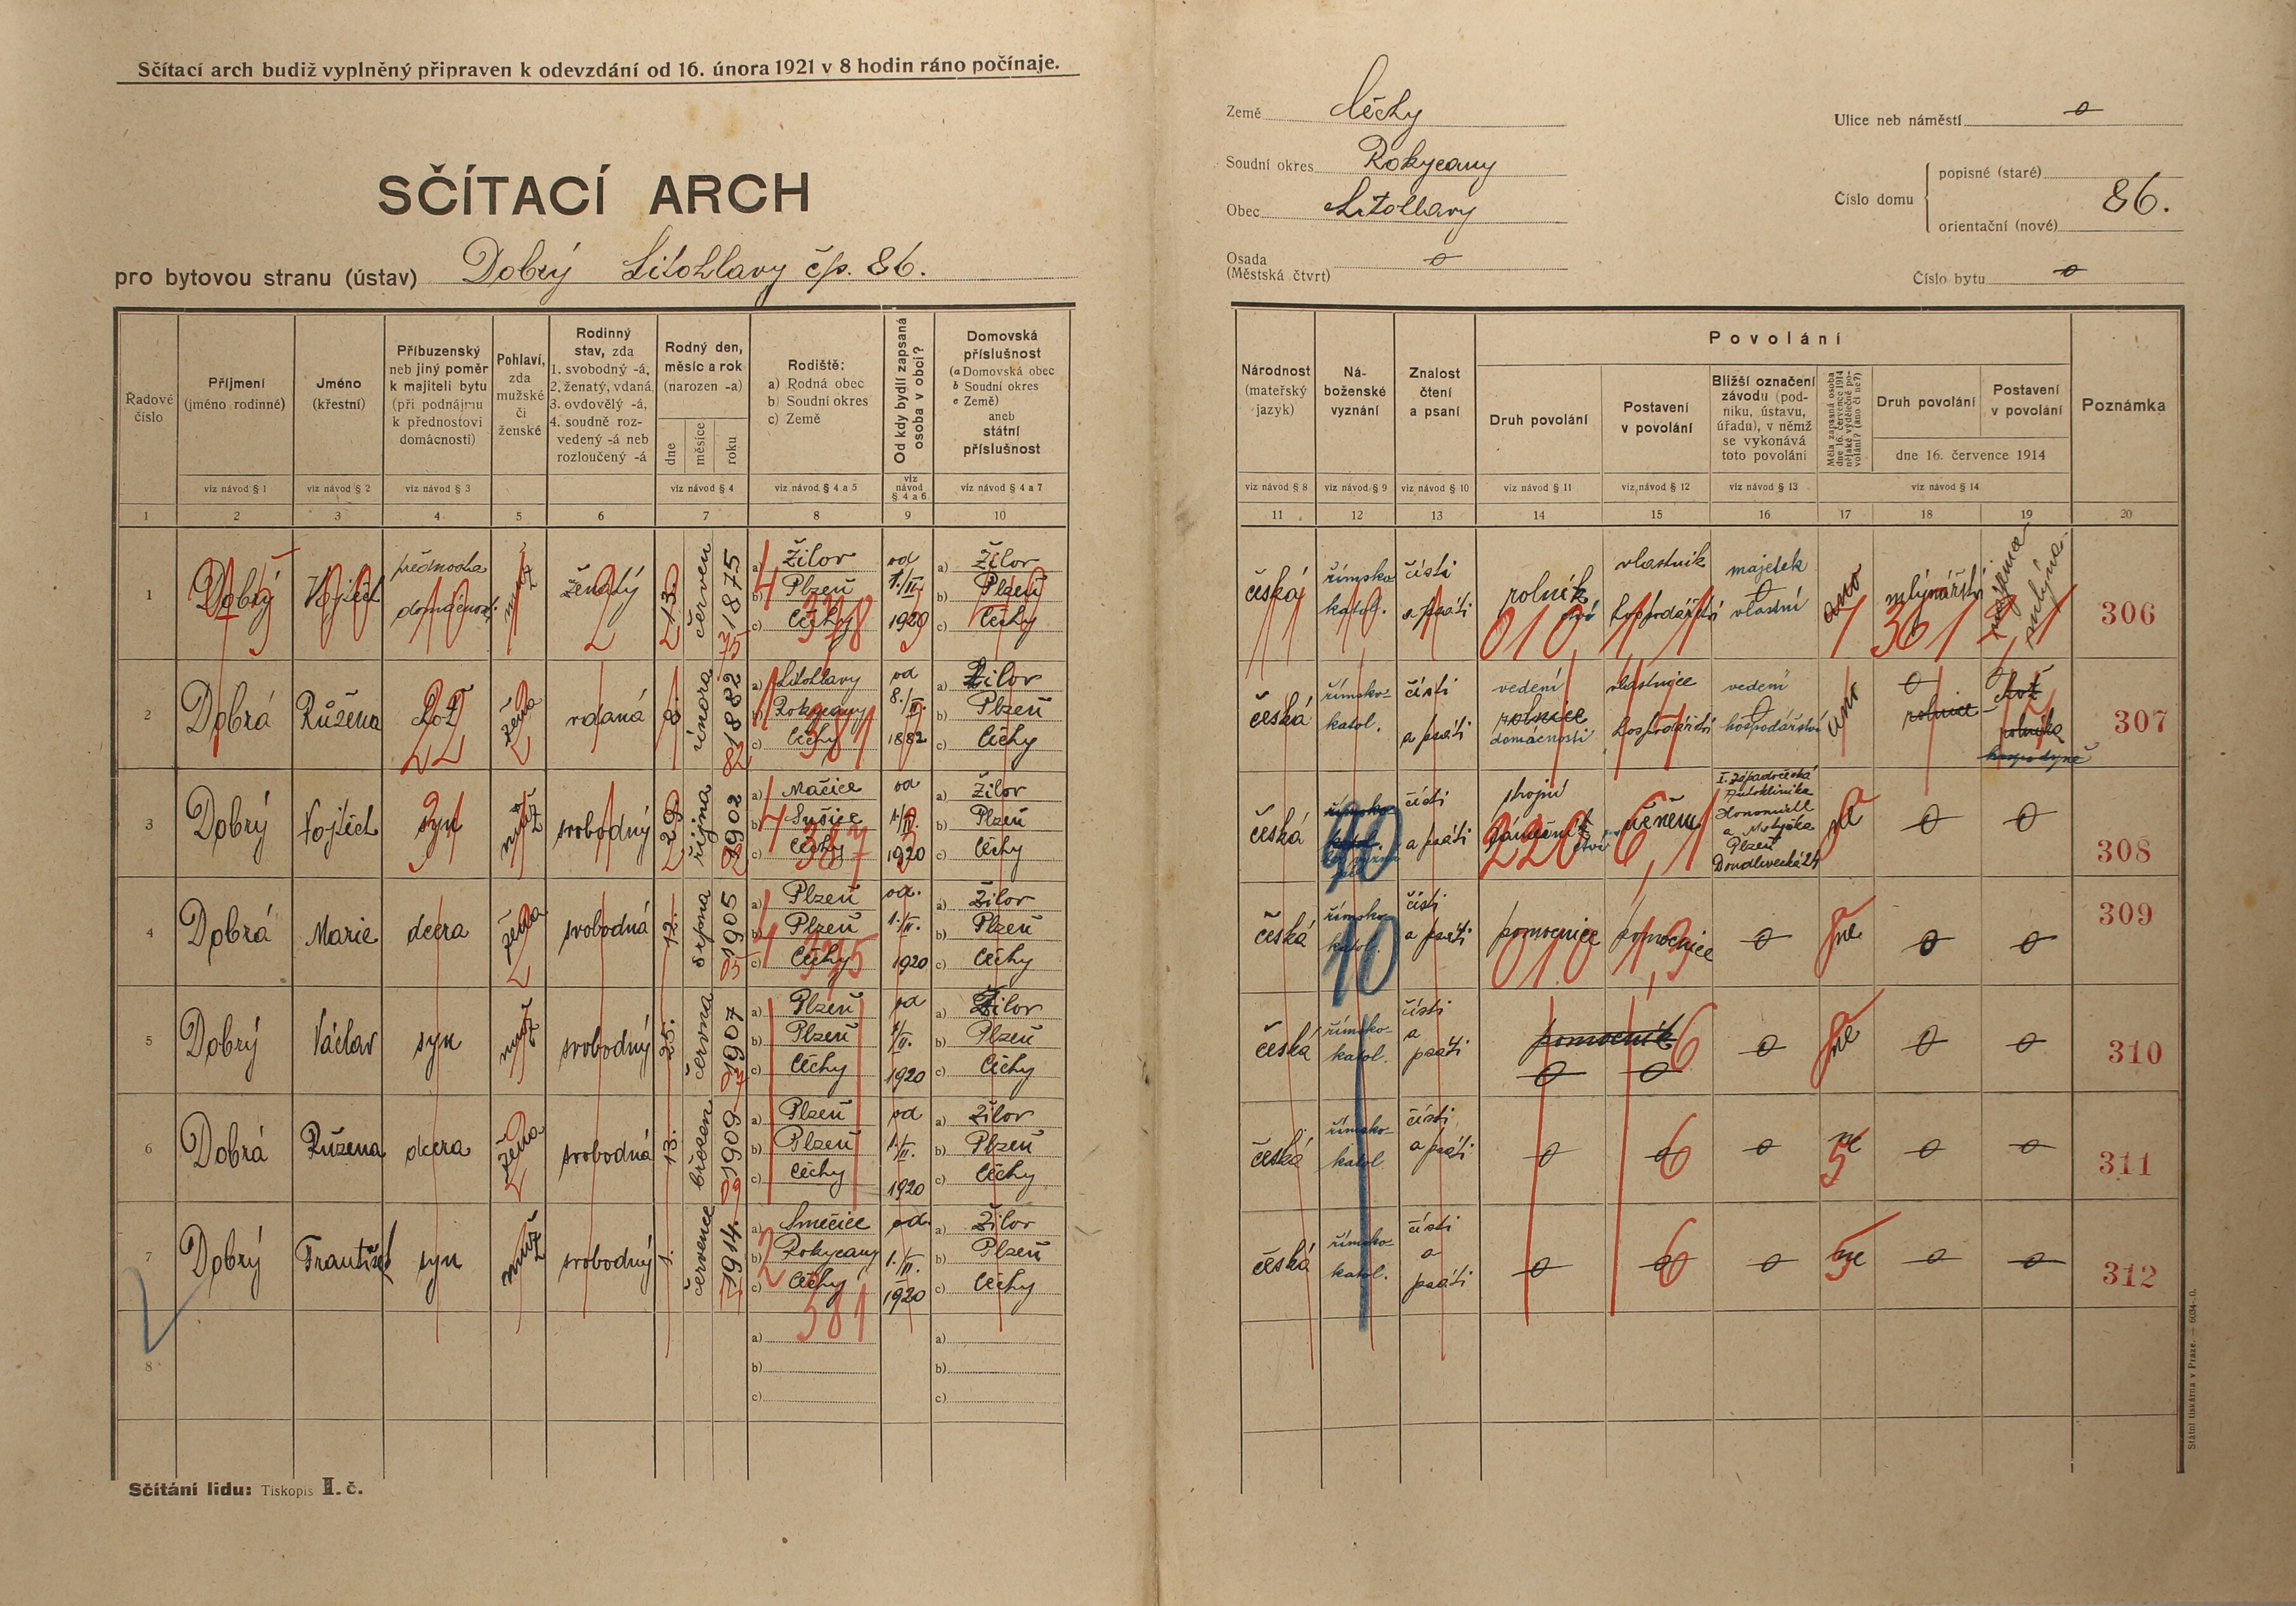 Sčítací arch budiž vyplněný připraven k odevzdání od 16. února 1921 v 8 hodin ráno počínaje.
SČÍTACÍ ARCH
pro bytovou stranu (ústav) Dobrý Litohlavy čp. 86.
Země Čechy
Soudní okres Rokycany
Obec Litohlavy
Osada (Městská čtvrt) 0
Ulice neb náměstí 0
Číslo domu popisné (staré) orientační (nové) 86.
Číslo bytu 0
Řadové číslo
Příjmení (jméno rodinné)
Jméno (křestní)
Příbuzenský neb jiný poměr k majiteli bytu (při podnájmu k přednostovi domácnosti)
Pohlaví, zda mužské či ženské
Rodinný stav, zda 1. svobodný -á, 2. ženatý, vdaná, 3. ovdovělý -á, 4. soudně rozvedený -á neb rozloučený -á
Rodný den, měsíc a rok (narozen -a)
dne měsíce roku
Rodiště: a) Rodná obec b) Soudní okres c) Země
Od kdy bydlí zapsaná osoba v obci?
Domovská příslušnost (a Domovská obec b Soudní okres c Země) aneb státní příslušnost
Národnost (mateřský jazyk)
Náboženské vyznání
Znalost čtení a psaní
Povolání
Druh povolání
Postavení v povolání
Bližší označení závodu (podniku, ústavu, úřadu), v němž se vykonává toto povolání
Měla zapsaná osoba dne 16. července 1914 nějaké výdělečné povolání? (ano či ne?)
Druh povolání
Postavení v povolání
dne 16. července 1914
Poznámka
viz návod § 1 viz návod § 2 viz návod § 3 viz návod § 4 viz návod § 4 a 5 viz návod § 4 a 6 viz návod § 4 a 7
viz návod § 8 viz návod § 9 viz návod § 10 viz návod § 11 viz návod § 12 viz návod § 13 viz návod § 14
1 2 3 4 5 6 7 8 9 10
11 12 13 14 15 16 17 18 19 20
1 Dobrý Vojtěch přednosta domácnosti muž ženatý 13. červen 1875 a) Žilov b) Plzeň c) Čechy od 1./II. 1920 a) Žilov b) Plzeň c) Čechy
česká římsko katol. čísti a psáti rolník vlastník hospodářství majetek vlastní ano mlýnářství nájemce mlýna 306
2 Dobrá Růžena žena vdaná 8. února 1882 a) Litohlavy b) Rokycany c) Čechy od 8./II. 1882 a) Žilov b) Plzeň c) Čechy
česká římsko-katol. čísti a psáti vedení rolnice domácnosti vlastnice hospodářství vedení hospodářství ano 0 rolnice rolníka hospodyně 307
3 Dobrý Vojtěch syn muž svobodný 29. října 1902 a) Mačice b) Sušice c) Čechy od 1./II. 1920 a) Žilov b) Plzeň c) Čechy
česká římsko katol. čísti a psáti strojní zámečnictví učněm I. Západočeská Autoklinika Plzeň Doudlevecká 24 ne 0 0 308
4 Dobrá Marie dcera žena svobodná 12. srpna 1905 a) Plzeň b) Plzeň c) Čechy od. 1./II. 1920 a) Žilov b) Plzeň c) Čechy
česká římsko-katol. čísti a psáti pomocnice pomocnice 0 ne 0 0 309
5 Dobrý Václav syn muž svobodný 25. června 1907 a) Plzeň b) Plzeň c) Čechy od 1/II. 1920 a) Žilov b) Plzeň c) Čechy
česká římsko-katol. čísti a psáti pomocník 0 0 0 ne 0 0 310
6 Dobrá Růžena dcera žena svobodná 13. březen 1909 a) Plzeň b) Plzeň c) Čechy od 1./II. 1920 a) Žilov b) Plzeň c) Čechy
česká římsko-katol. čísti a psáti 0 0 0 ne 0 0 311
7 Dobrý František syn muž svobodný 1. července 1914. a) Smečice b) Rokycany c) Čechy od. 1./II. 1920 a) Žilov b) Plzeň c) Čechy
česká římsko-katol. čísti a psáti 0 0 0 ne 0 0 312
8 a) b) c) a) b) c)
Sčítání lidu: Tiskopis II. č.
Státní tiskárna v Praze. — 6034-0.